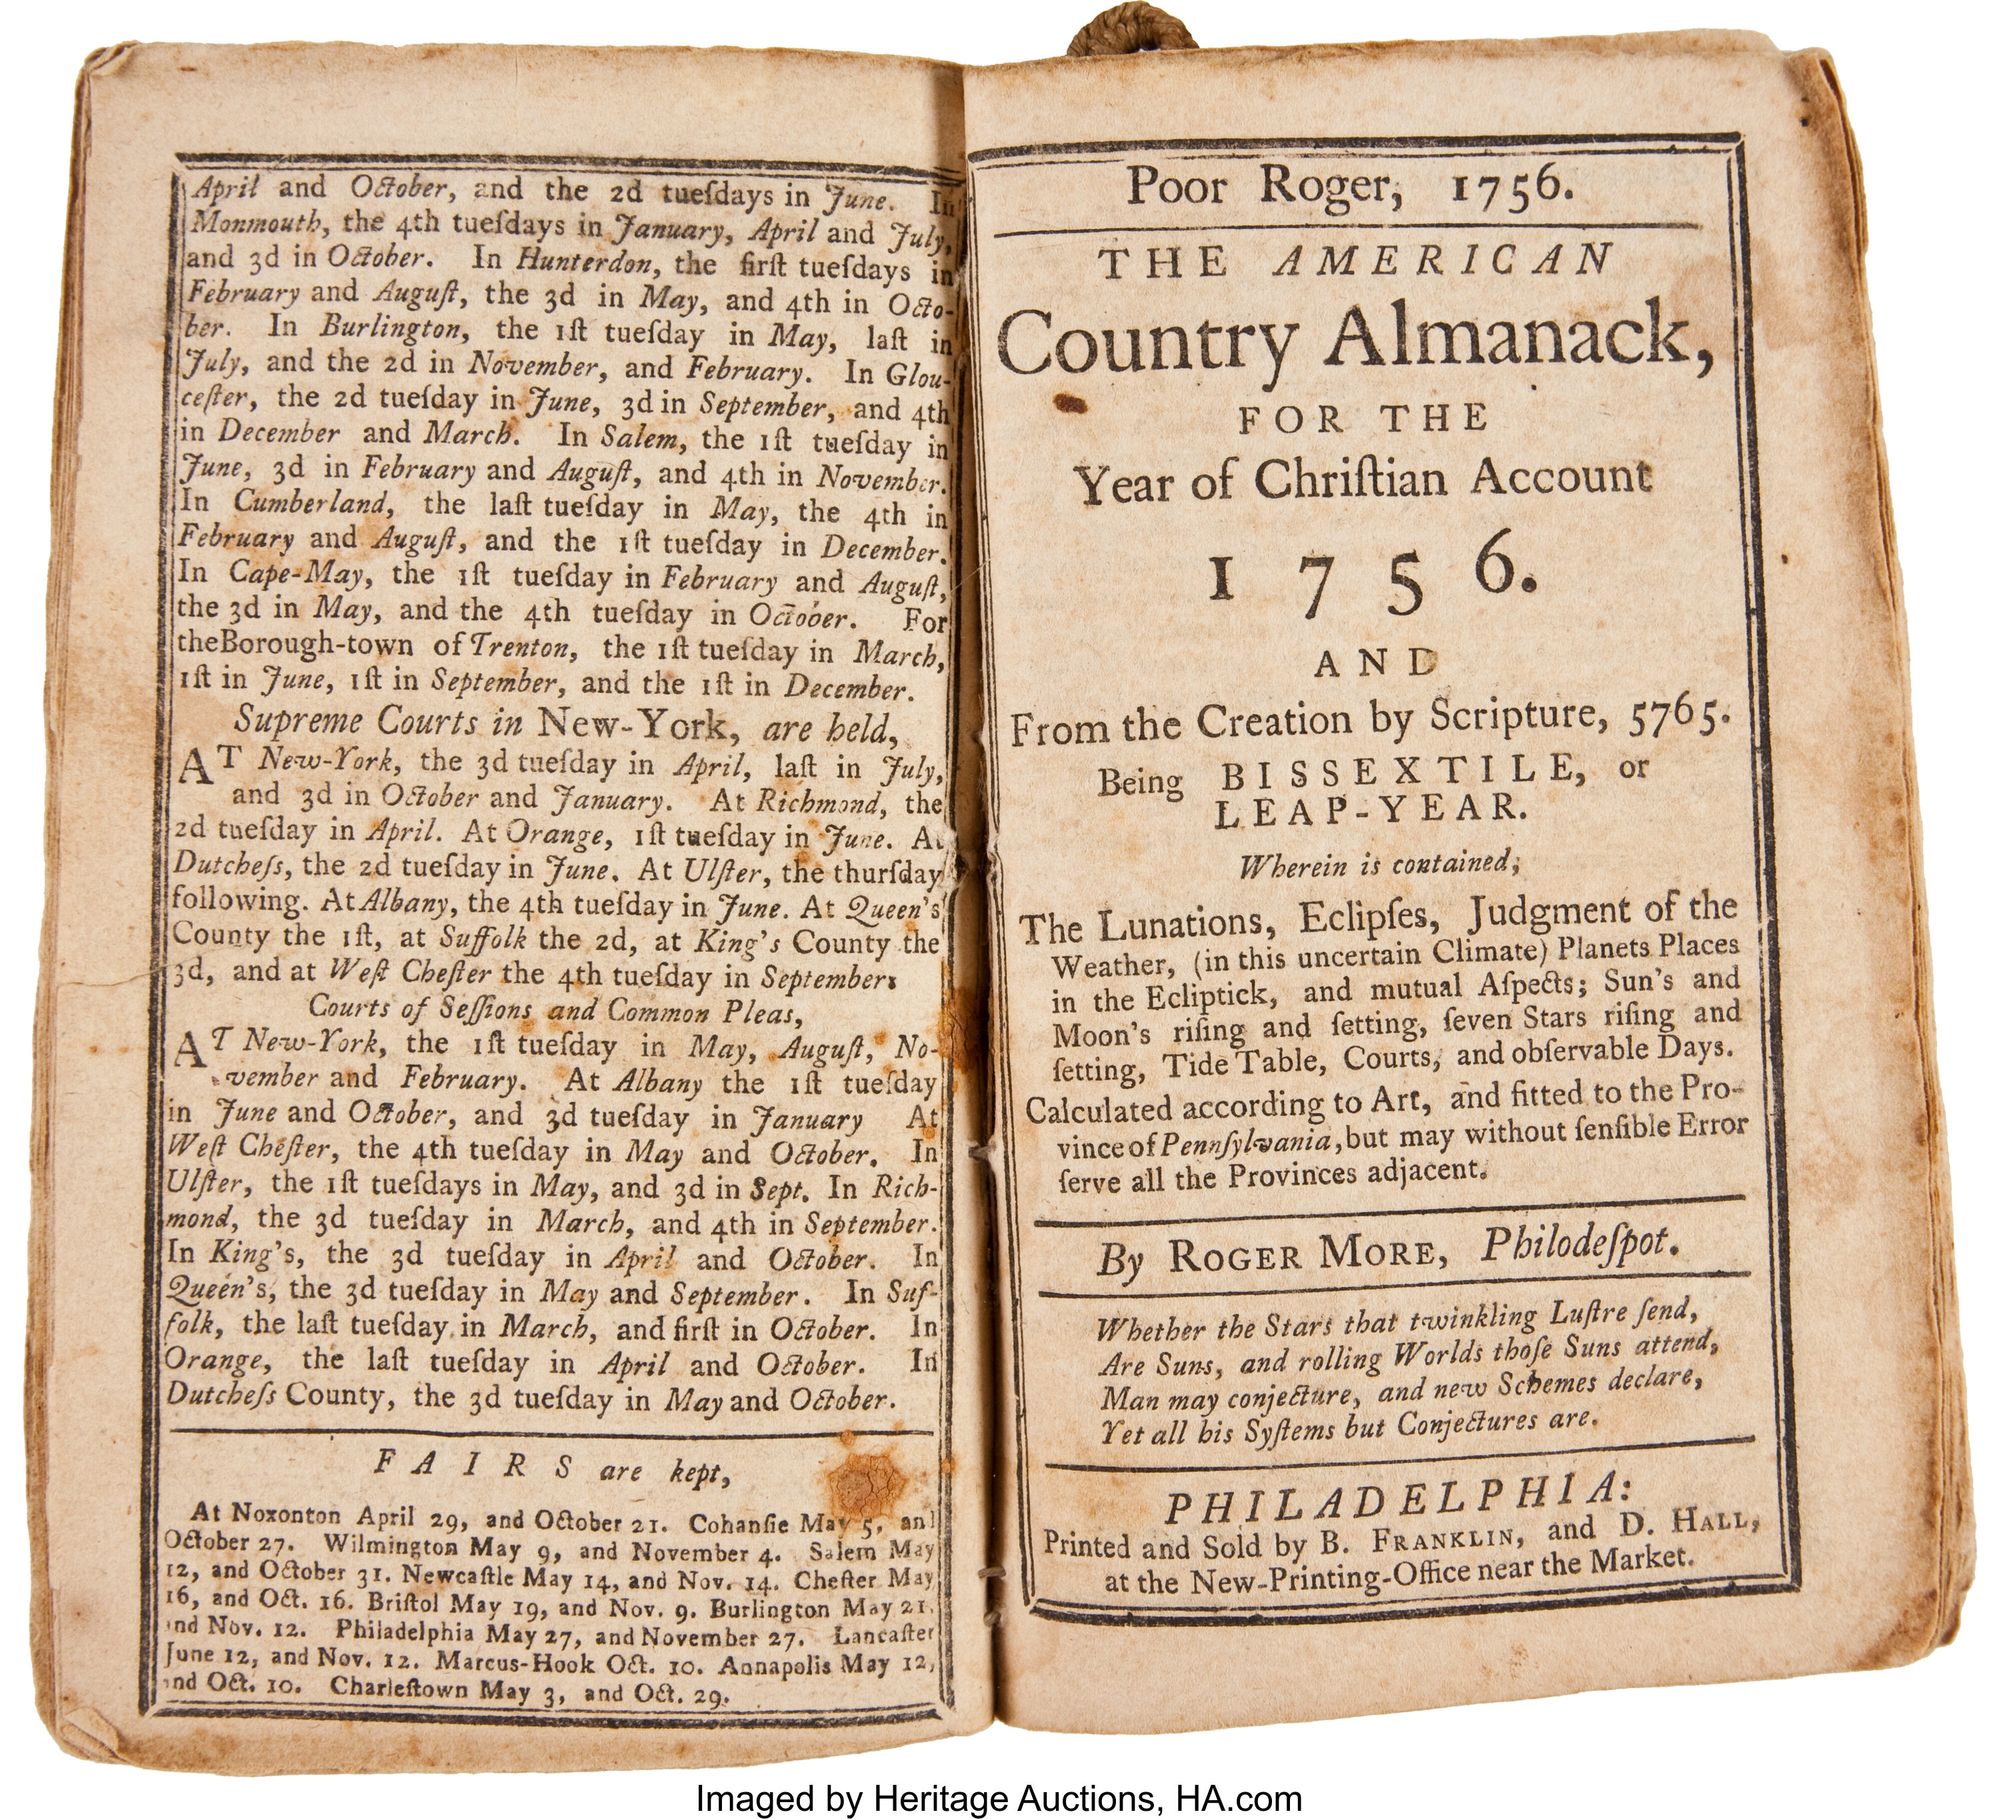 April and October, and the 2d tueſdays in June. In
Monmouth, the 4th tueſdays in January, April and July,
and 3d in October. In Hunterdon, the firſt tueſdays in
February and Auguſt, the 3d in May, and 4th in Octo-
ber. In Burlington, the 1ſt tueſday in May, laſt in
July, and the 2d in November, and February. In Glou-
ceſter, the 2d tueſday in June, 3d in September, and 4th
in December and March. In Salem, the 1ſt tueſday in
June, 3d in February and Auguſt, and 4th in November.
In Cumberland, the laſt tueſday in May, the 4th in
February and Auguſt, and the 1ſt tueſday in December.
In Cape-May, the 1ſt tueſday in February and Auguſt,
the 3d in May, and the 4th tueſday in October. For
theBorough-town of Trenton, the 1ſt tueſday in March,
1ſt in June, 1ſt in September, and the 1ſt in December.
Supreme Courts in New-York, are held,
AT New-York, the 3d tueſday in April, laſt in July,
and 3d in October and January. At Richmond, the
2d tueſday in April. At Orange, 1ſt tueſday in June. At
Dutcheſs, the 2d tueſday in June. At Ulſter, the thurſday
following. At Albany, the 4th tueſday in June. At Queen's
County the 1ſt, at Suffolk the 2d, at King's County the
3d, and at Weſt Cheſter the 4th tueſday in September:
Courts of Seſſions and Common Pleas,
AT New-York, the 1ſt tueſday in May, Auguſt, No-
vember and February. At Albany the 1ſt tueſday
in June and October, and 3d tueſday in January At
Weſt Cheſter, the 4th tueſday in May and October. In
Ulſter, the 1ſt tueſdays in May, and 3d in Sept. In Rich-
mond, the 3d tueſday in March, and 4th in September.
In King's, the 3d tueſday in April and October. In
Queen's, the 3d tueſday in May and September. In Suf-
folk, the laſt tueſday in March, and firſt in October. In
Orange, the laſt tueſday in April and October. In
Dutcheſs County, the 3d tueſday in May and October.
FAIRS are kept,
At Noxonton April 29, and October 21. Cohanſie May 5, and
October 27. Wilmington May 9, and November 4. Salem May
12, and October 31. Newcaſtle May 14, and Nov. 14. Cheſter May
16, and Oct. 16. Briſtol May 19, and Nov. 9. Burlington May 21,
and Nov. 12. Philadelphia May 27, and November 27. Lancaſter
June 12, and Nov. 12. Marcus-Hook Oct. 10. Annapolis May 12,
and Oct. 10. Charleſtown May 3, and Oct. 29.
Poor Roger, 1756.
THE AMERICAN
Country Almanack,
FOR THE
Year of Chriſtian Account
1756.
AND
From the Creation by Scripture, 5765.
Being BISSEXTILE, or
LEAP-YEAR.
Wherein is contained;
The Lunations, Eclipſes, Judgment of the
Weather, (in this uncertain Climate) Planets Places
in the Ecliptick, and mutual Aſpects; Sun's and
Moon's riſing and ſetting, ſeven Stars riſing and
ſetting, Tide Table, Courts, and obſervable Days.
Calculated according to Art, and fitted to the Pro-
vince of Pennſylvania, but may without ſenſible Error
ſerve all the Provinces adjacent.
By ROGER MORE, Philodeſpot.
Whether the Stars that twinkling Luſtre ſend,
Are Suns, and rolling Worlds thoſe Suns attend,
Man may conjecture, and new Schemes declare,
Yet all his Syſtems but Conjectures are.
PHILADELPHIA:
Printed and Sold by B. FRANKLIN, and D. HALL,
at the New-Printing-Office near the Market.
Imaged by Heritage Auctions, HA.com